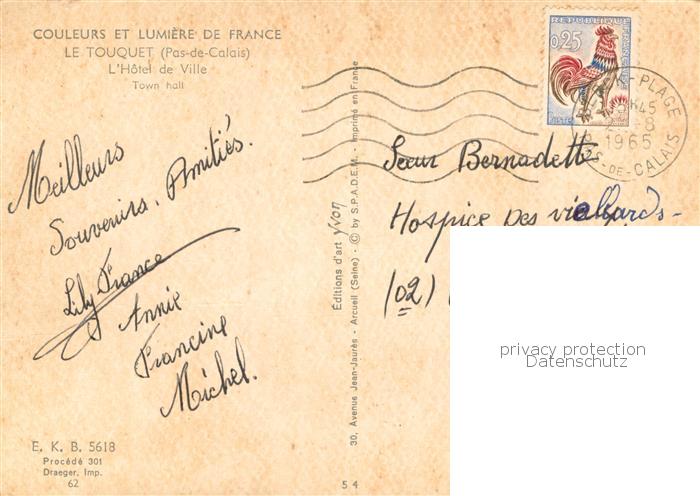 COULEURS ET LUMIÈRE DE FRANCE
LE TOUQUET (Pas-de-Calais)
L'Hôtel de Ville
Town hall
Meilleurs
Souvenirs. Amitiés.
Lily France
Annie
Francine
Michel.
E. K. B. 5618
Procédé 301
Draeger, Imp.
62
Éditions d'art yvon
30, Avenue Jean-Jaurès - Arcueil (Seine) - © by S.P.A.D.E.M. - Imprimé en France
54
REPUBLIQUE FRANÇAISE
0,25
POSTES
-PLAGE
45
-8
1965
PAS-DE-CALAIS
Sœur Bernadette
Hospice des vieillards-
(02)
privacy protection
Datenschutz